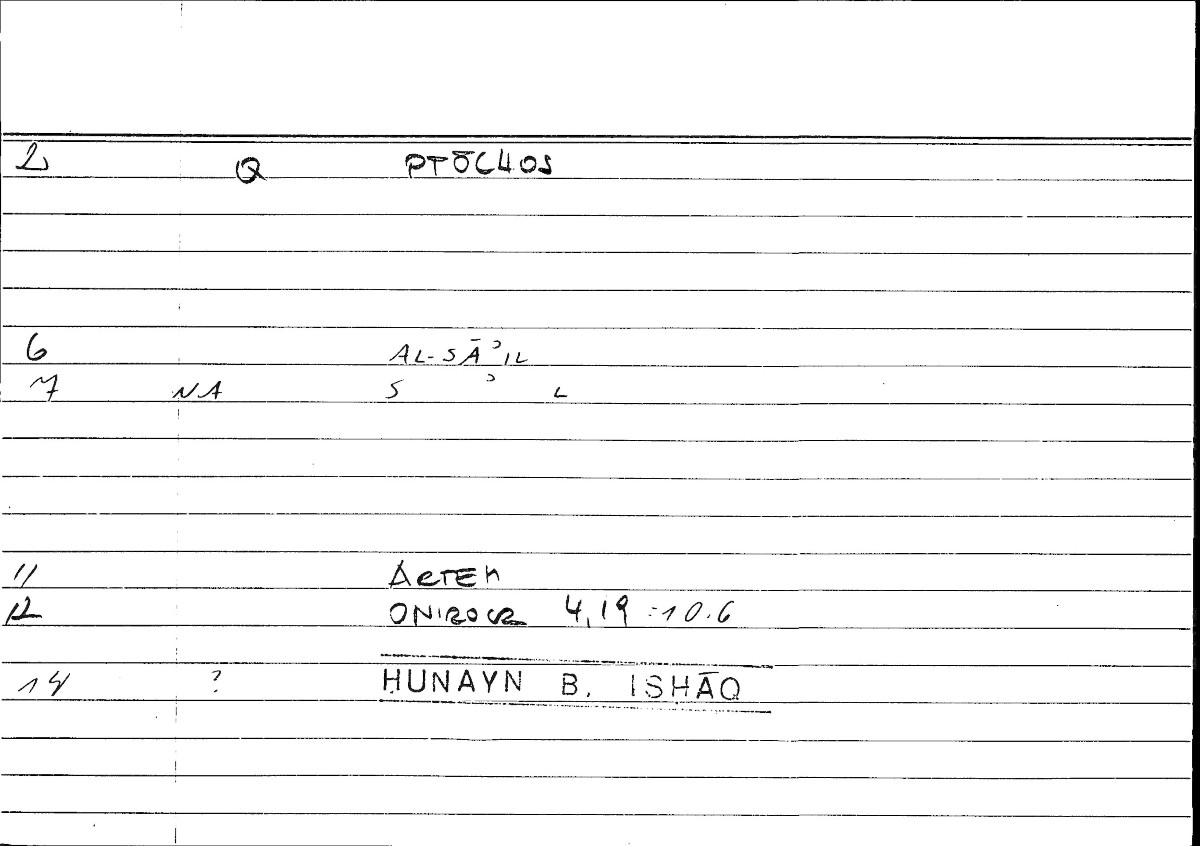 2 Q PTŌCHOS
6 AL-SĀʾIL
7 NA S ʾ L
11 ARTEM
12 ONIROCR 4,19 :10.6
14 ? ḤUNAYN B. ISḤĀQ